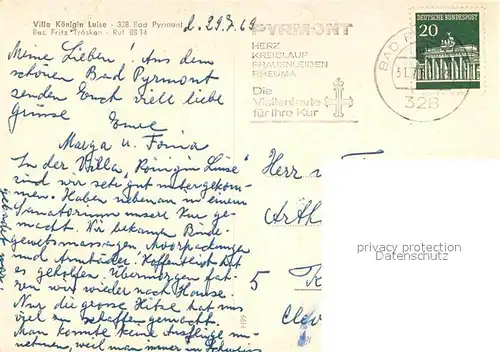 Villa Königin Luise - 328 Bad Pyrmont
Bes. Fritz Tröskan - Ruf 8814
d. 29.7.69
PYRMONT
HERZ
KREISLAUF
FRAUENLEIDEN
RHEUMA
Die
Visitenkarte
für Ihre Kur
DEUTSCHE BUNDESPOST
20
BAD
31.7
328
Meine Lieben! Aus dem
schönen Bad Pyrmont
senden Euch viele liebe
Grüsse Eure
Marga u.
In der Villa "Königin Luise"
sind wir sehr gut untergekom-
men. Haben nebenan in einem
Sanatorium unsere Kur ge-
macht. Wir bekamen Binde-
gewebsmassagen, Moorpackungen
und Armbäder. Hoffentlich hat
es geholfen. Übermorgen fah-
ren wir wieder nach Hause.
Nur die grosse Hitze hat uns
viel zu schaffen gemacht.
Man konnte keine Ausflüge un-
ternehmen, weil man immer in Schweiss
gebadet war.
Herr u.
5
privacy protection